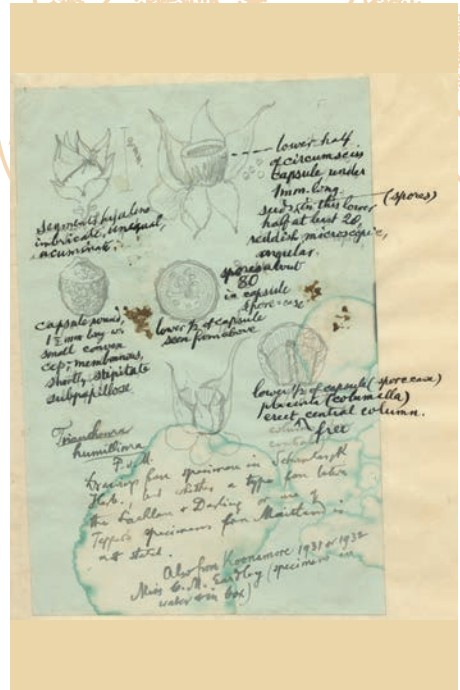 lower half
of circumsciss
capsule, under
1mm. long.
seeds in this lower (spores)
half at least 20,
reddish microscopic,
angular.
segments hyaline
imbricate, unequal,
acuminate.
spores about
80
in capsule
spore-case
capsule round,
1½ mm long w.
small convex
cap; membranous,
shortly stipitate
subpapillose.
lower ½ of capsule
seen from above
lower ½ of capsule (spore case)
placenta (columella)
erect central column.
free
Trianthema
humillima
F.v.M.
Drawings from specimens in Schomburgk
Herb., but whether a type from between
the Lachlan & Darling or one of
Tepper's specimens from Maitland is
not stated.
Also from Koonamore 1931 or 1932
Miss C. M. Eardley (specimens in
water & in box)